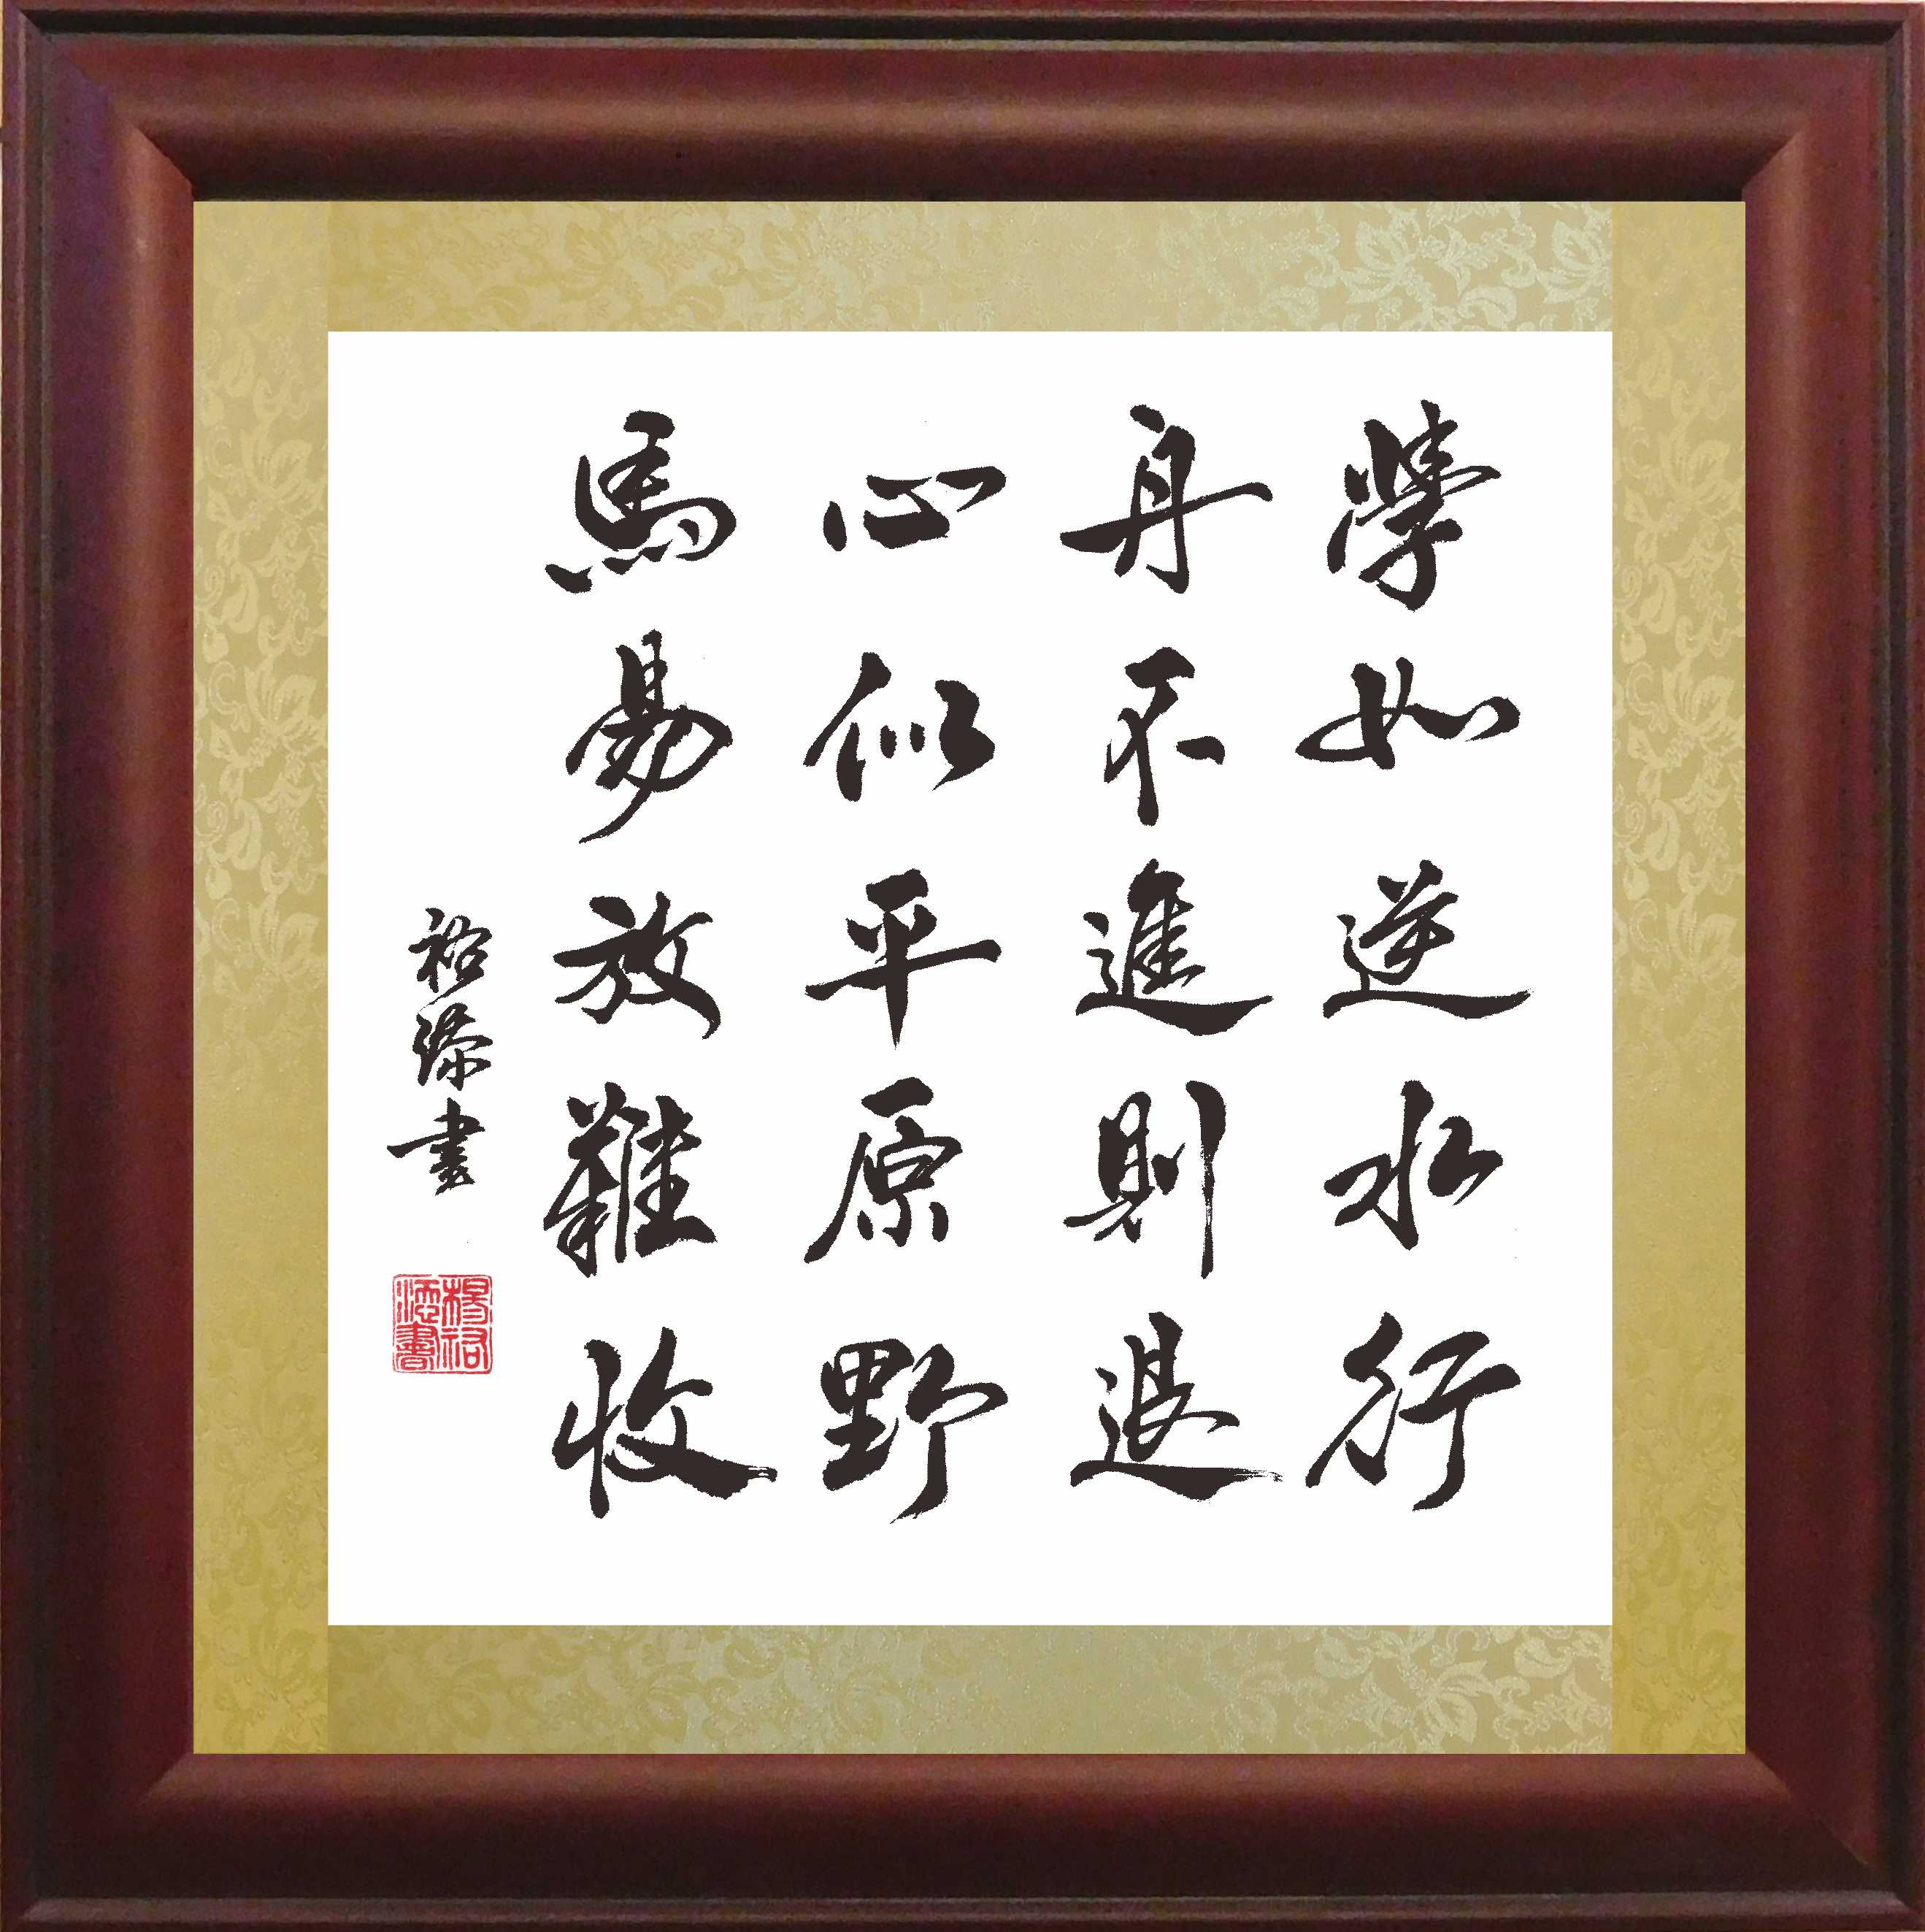 學如逆水行
舟不進則退
心似平原野
馬易放難收
裕添書
楊裕
添書